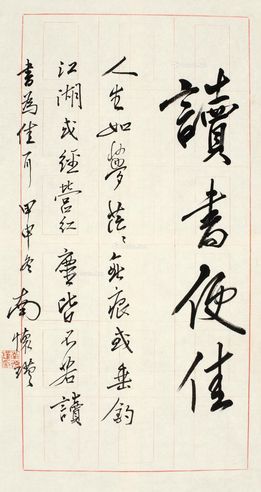 讀書便佳
人生如夢茫々無痕或垂釣
江湖或經營紅塵皆不若讀
書為佳耳 甲申冬 南懷瑾